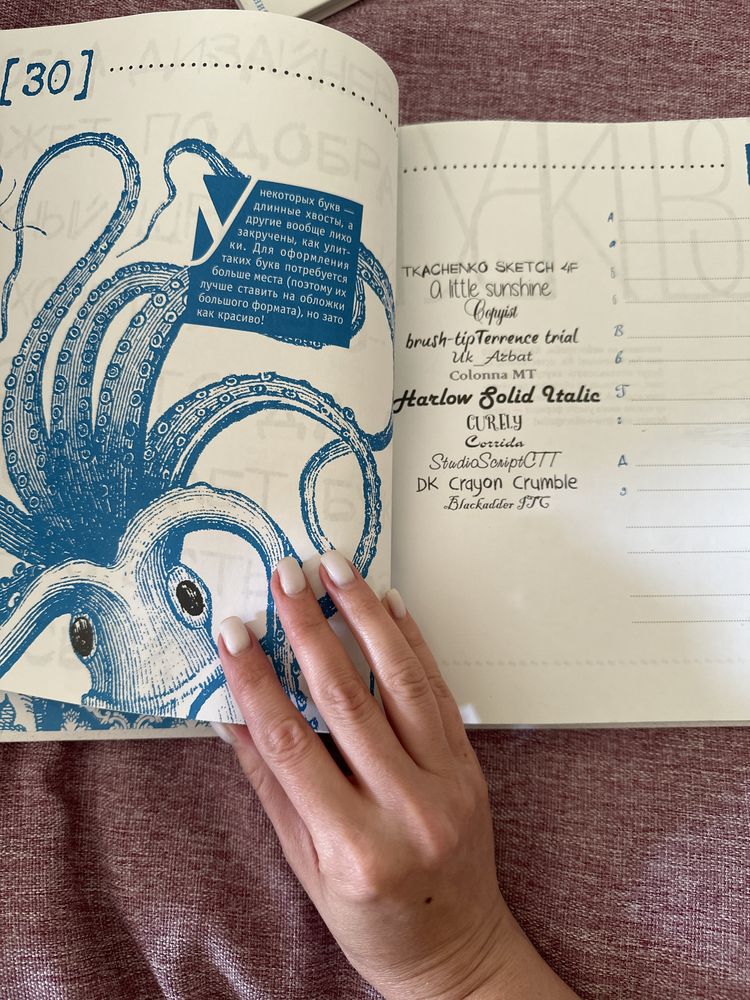 [30]
У некоторых букв —
длинные хвосты, а
другие вообще лихо
закручены, как улит-
ки. Для оформления
таких букв потребуется
больше места (поэтому их
лучше ставить на обложки
большого формата), но зато
как красиво!
TKACHENKO SKETCH 4F
a little sunshine
Copyist
brush-tipTerrence trial
Uk_Azbat
Colonna MT
Harlow Solid Italic
CURELY
Corrida
StudioScriptCTT
DK Crayon Crumble
Blackadder ITC
А
а
Б
б
В
в
Г
г
Д